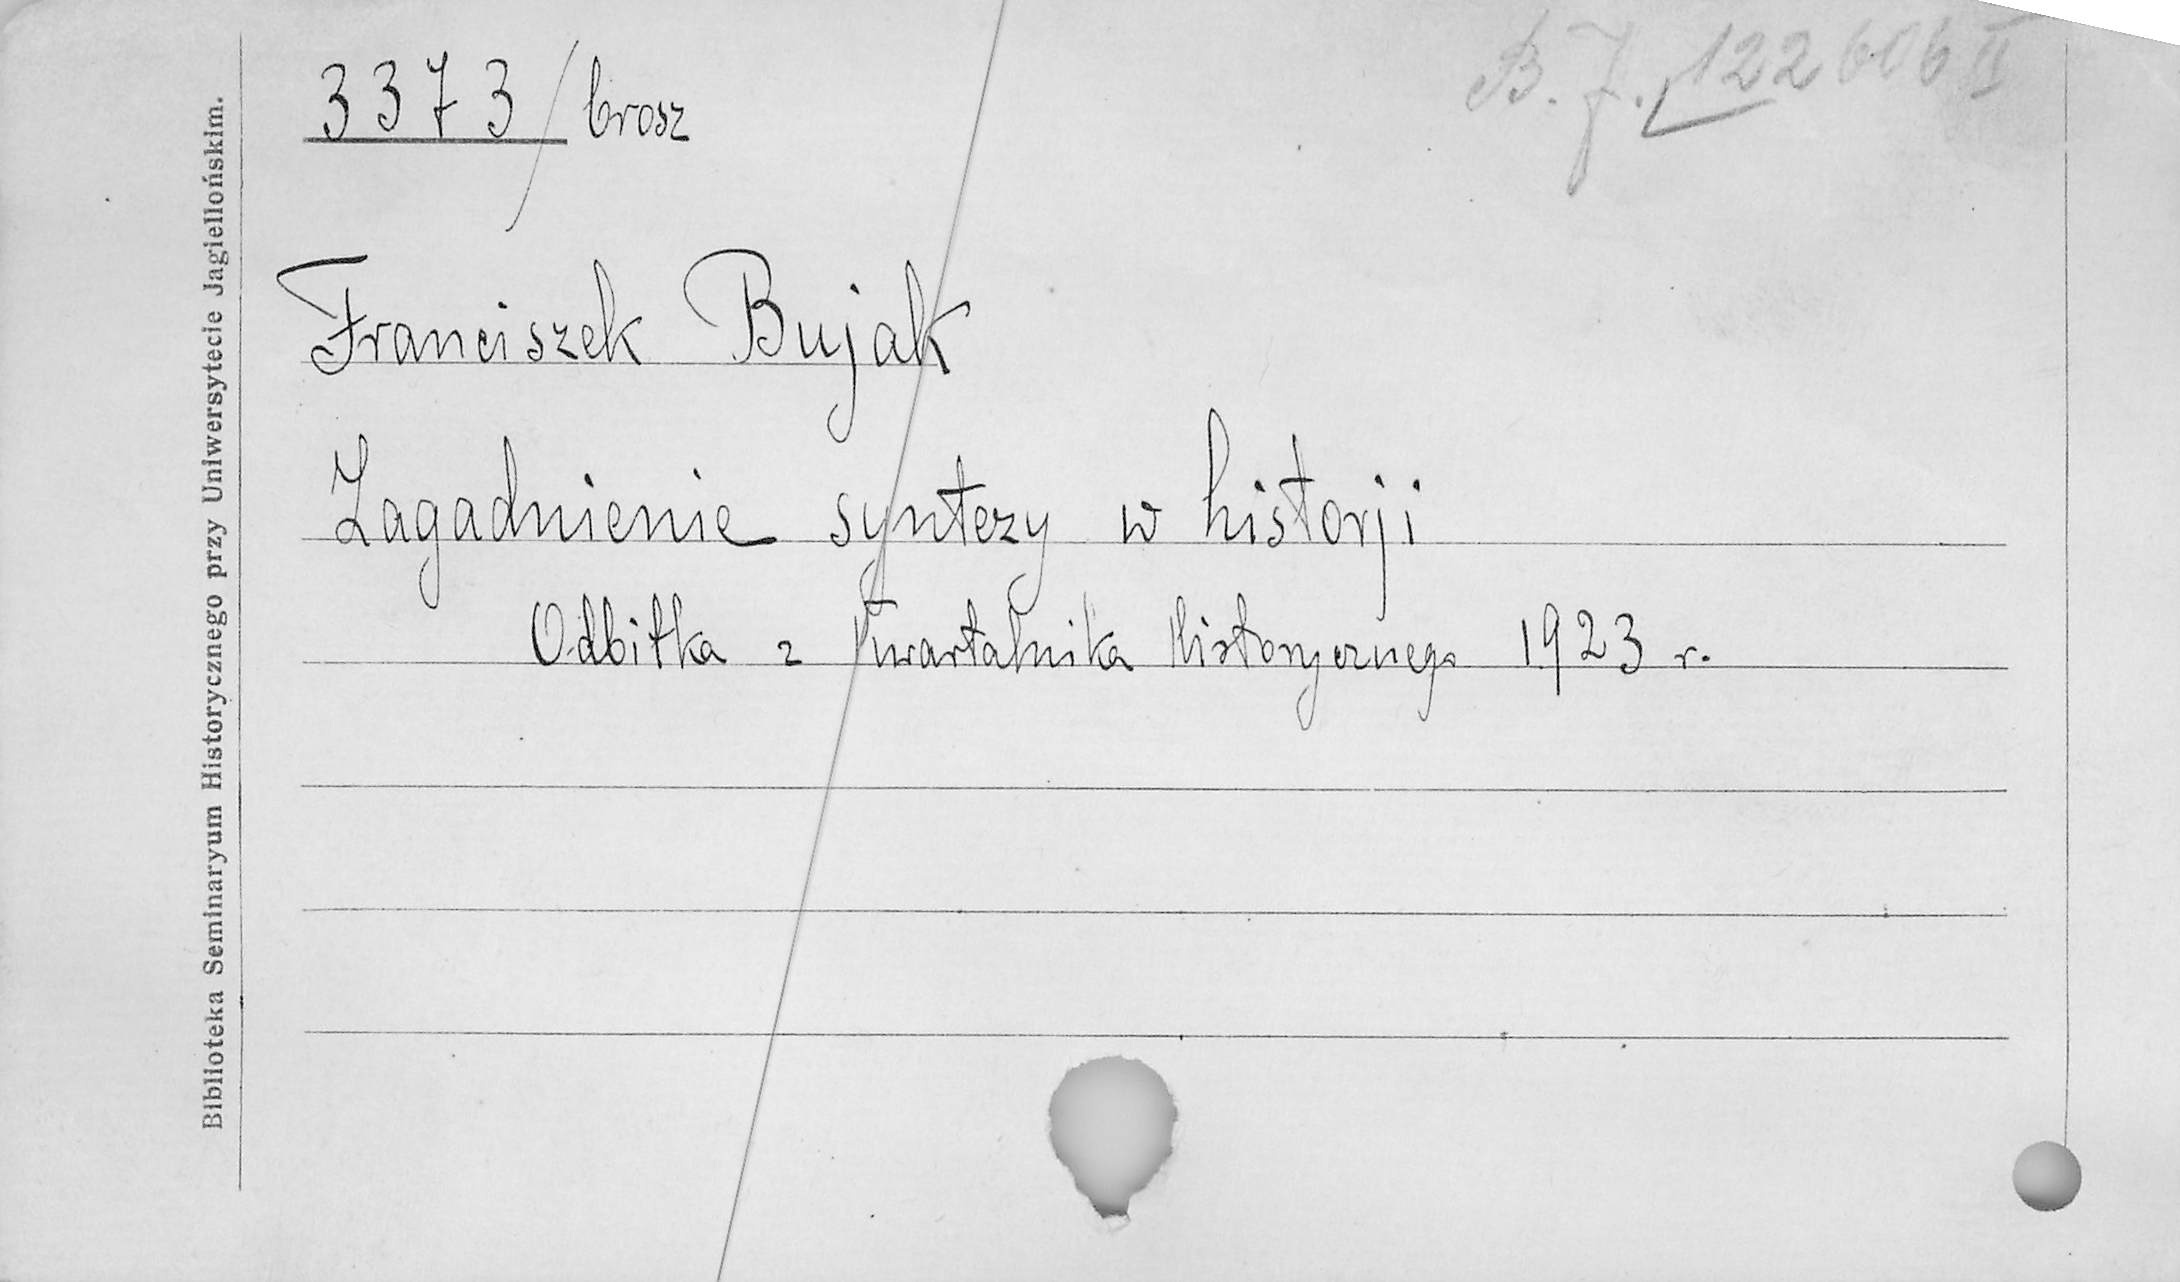 3373/brosz
B. J. 122606 II
Franciszek Bujak
Zagadnienie syntezy w historji
Odbitka z Kwartalnika Historycznego 1923 r.
Biblioteka Seminaryum Historycznego przy Uniwersytecie Jagiellońskim.